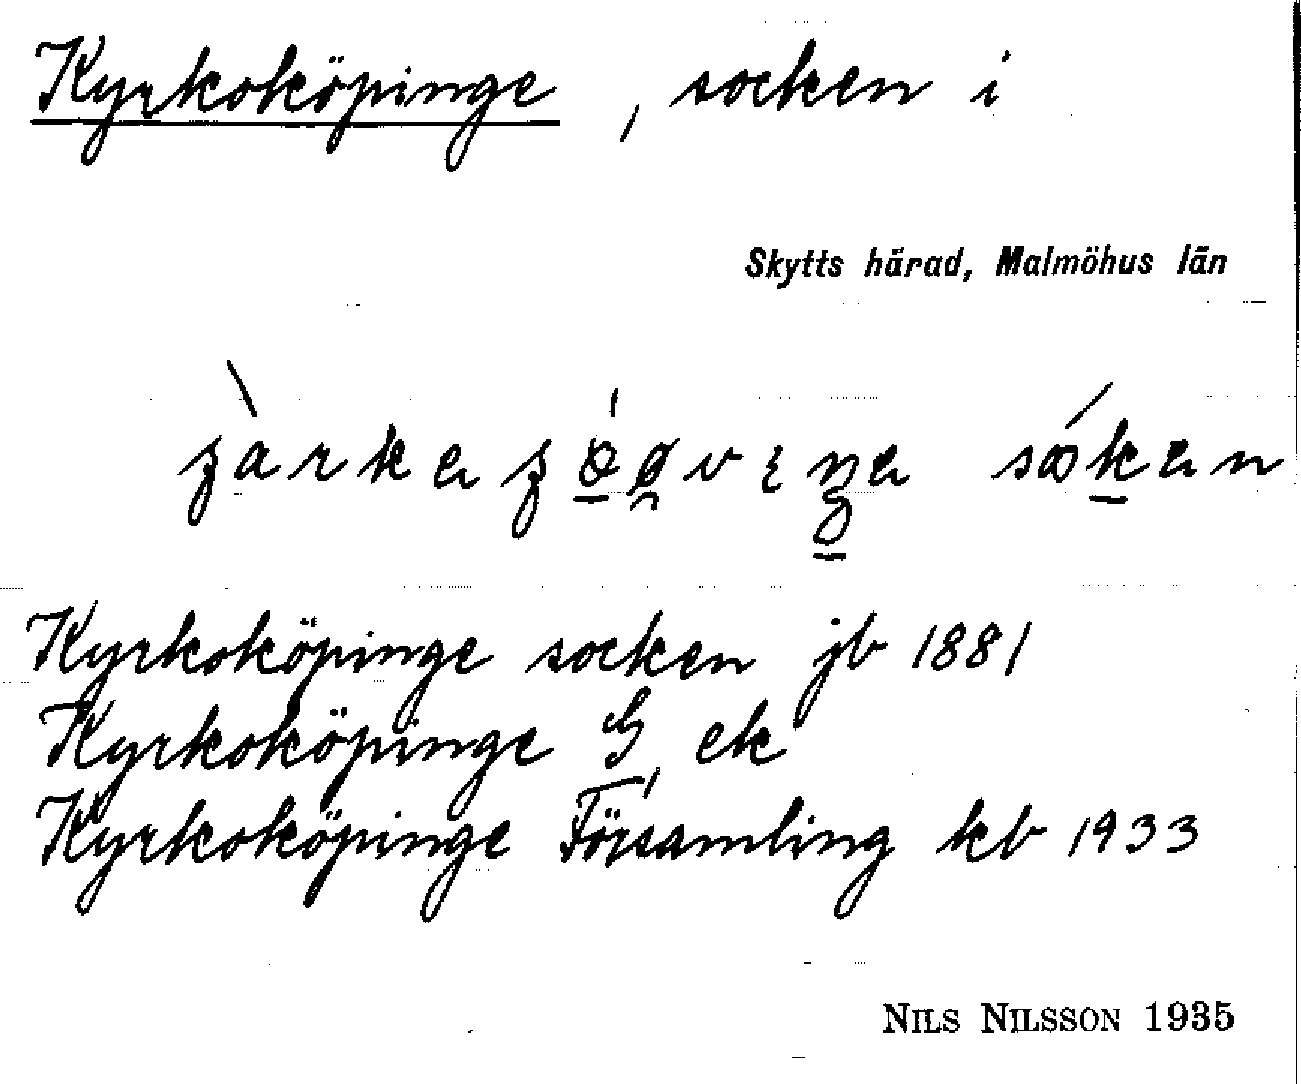 Kyrkoköpinge, socken i
Skytts härad, Malmöhus län
Kyrkoköpinge socken jb 1881
Kyrkoköpinge G, ek
Kyrkoköpinge Församling kb 1933
NILS NILSSON 1935